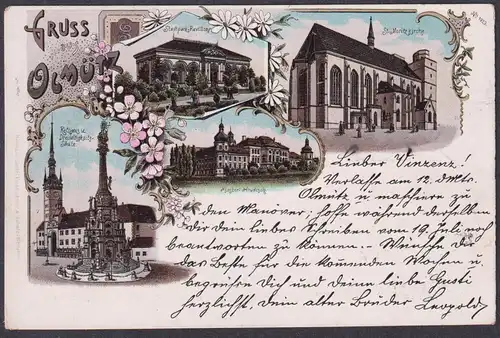 GRUSS
Olmütz
Stadtpark Pavillon
St. Mauritzkirche
Rathaus u.
Dreifaltigkeits-
Säule
Kloster Hradisch
Lieber Vinzenz!
Verlasse am 12. d Mts.
Olmütz u. marschiere zu
den Manöver; hoffe während derselben
Dir dein liebes Schreiben vom 19. Juli noch
beantworten zu können. – Wünsche dir
das Beste für die kommenden Wochen u.
begrüße Dich und deine liebe Gusti
herzlichst, dein alter Bruder Leopold